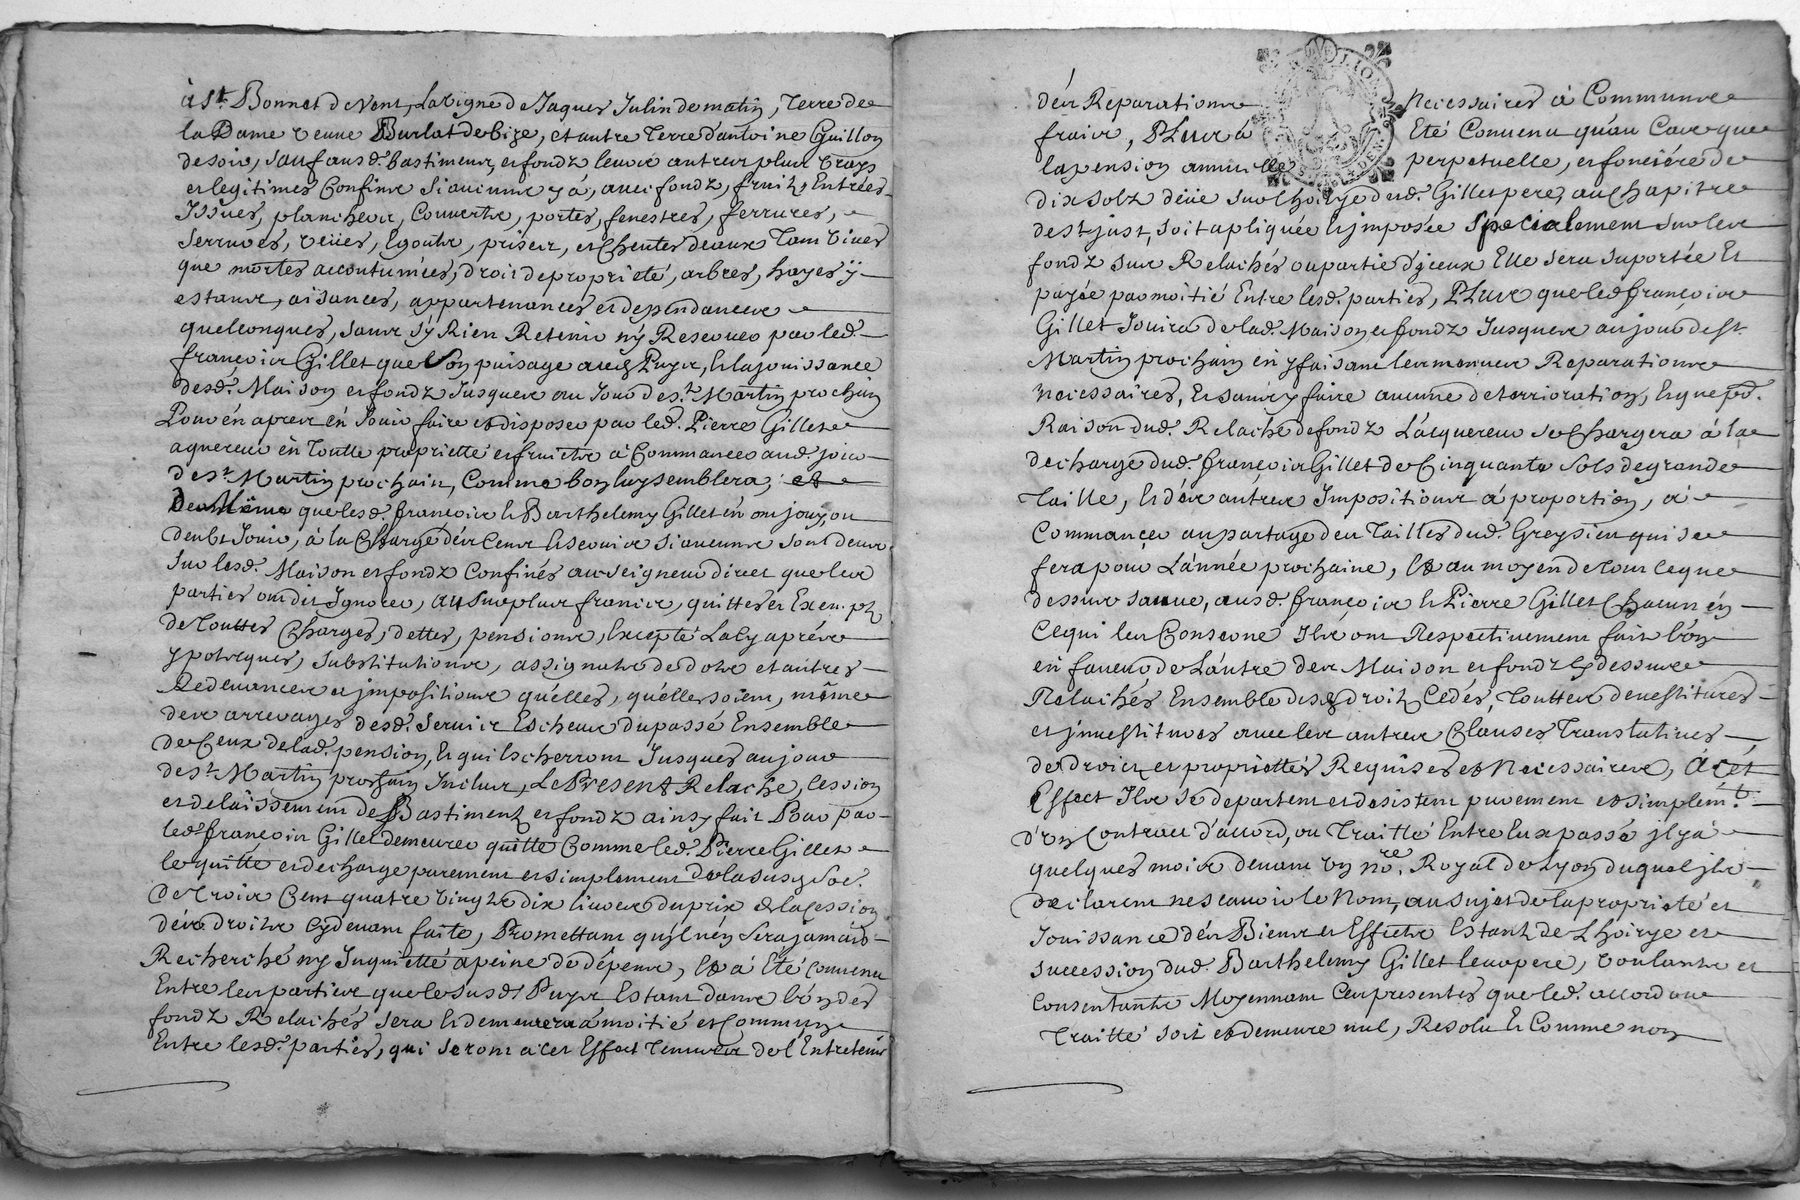 à St. Bonnet de Vent, La vigne de Jaques Julin de matin, Terre de
la Dame veuue Burlat de bize, et autre Terre d'antoine Guillon
de soir, sauf ausd. bastimens, et fondz leurs autres plus vrays
et legitimes Confins si aucuns y à, auec fondz, fruitz, Entrées
Issües, planchers, Couverts, portes, fenestres, ferrures,
serrures, veües, Egoutz, prises, et Cheutes deaux Tam vives
que mortes accoutumées, droit de proprieté, arbres, hayes ÿ
estans, aisances, appartenances et dependances
quelconques, sans s'y Rien Retenir ny Reserver par led.
françois Gillet que Son puisage au Puys, et la jouissance
desd. Maison et fondz Jusques au Jour de st. Martin prochain
Pour en apres en Jouir faire et disposer par led. Pierre Gillet
aquereur en Toutte proprietté et fruitz à Commancer aud. jour
de st. Martin prochain, Comme bon luy semblera, et
De Même que lesd. françois et Barthelemy Gillet én on jouy, ou
deubt Jouir, à la Charge dés Cens et servis si aucuns sont deus
sur lesd. Maison et fondz Confinés au seigneur direct que les
parties ont dit Ignorer, au surplus francs, quittes et Exempts
de Touttes Charges, dettes, pensions, Excepté La cy aprés
ypoteques, substitutions, assignatz de dotz et autres
Redevances et jmpositions qu'elles, qu'elle soient, même
des arrerages desd. servis Escheus du passé Ensemble
de Ceux de lad. pension, et qui Escherront Jusques au jour
de st. Martin prochain Inclus, Le Present Relache, Cession
et delaissement de Bastimentz et fondz ainsy fait Pour par
led. françois Gillet demeurer quitte Comme led. Pierre Gillet
le quitte et decharge purement et simplement De la susd. soe.
de Trois Cent quatre vingtz dix livres du prix de la Cession
dés droitz cy devant faite, Promettant qu'il n'én sera jamais
Recherché ny Inquietté a peine de dépens, Et à Eté Convenu
Entre les parties que le susd. Puys Estant dans l'un des
fondz Relachés sera et demeurera à moitié et Commun
Entre lesd. parties, qui seront à cet Effect Tenues de l'Entretenir
dés Reparations Necessaires à Communs
frais, Plus à Eté Convenu qu'au Cas que
la pension annuelle perpetuelle, et fonciére de
dix solz düe sur Lhoirye dud. Gillet pere, au Chapitre
de st. just, soit apliquée et jmposée specialement sur les
fondz sus Relachés ou partie d'jceux Elle sera suportée Et
payée par moitié Entre lesd. parties, Plus que led. françois
Gillet Jouira de lad. Maison et fondz Jusques au jour de st.
Martin prochain én y faisant les menues Reparations
necessaires, Et sans y faire aucune deterrioration, Et que pr.
Raison dud. Relache de fondz L'acquereur se Chargera à la
decharge dud. françois Gillet de Cinquante sols de grande
Taille, et dés autres Impositions à proportion, à
Commancer au partage des Tailles dud. Greysieu qui se
fera pour L'année prochaine, Et au moyen de Tout ce que
dessus sauue, ausd. françois et Pierre Gillet Chacun én
Ce qui les Conserne Ilz ont Respectivement fait l'un
en faveur de L'autre des Maison et fondz cy dessus
Relachés Ensemble desd. droitz Cedés, Touttes deuestitures
et jnuestitures auec les autres Clauses Translatives
de Droitz et proprietté Requises et Necessaires, A cet
Effect Ilz se departent et desistent purement et simplemt.
d'un Contract d'accord, ou Traitté Entre Eux passé jl y à
quelques mois deuant un nore. Royal de Lyon duquel jlz
declarent ne scauoir le Nom, au sujet de la proprieté et
Jouissance dés Biens et Effectz Estantz de L'hoirye et
succession dud. Barthelemy Gillet leur pere, voulantz et
Consentantz Moyennant Ces presentes que led. accord ou
Traitté soit et demeure nul, Resolu Et Comme non